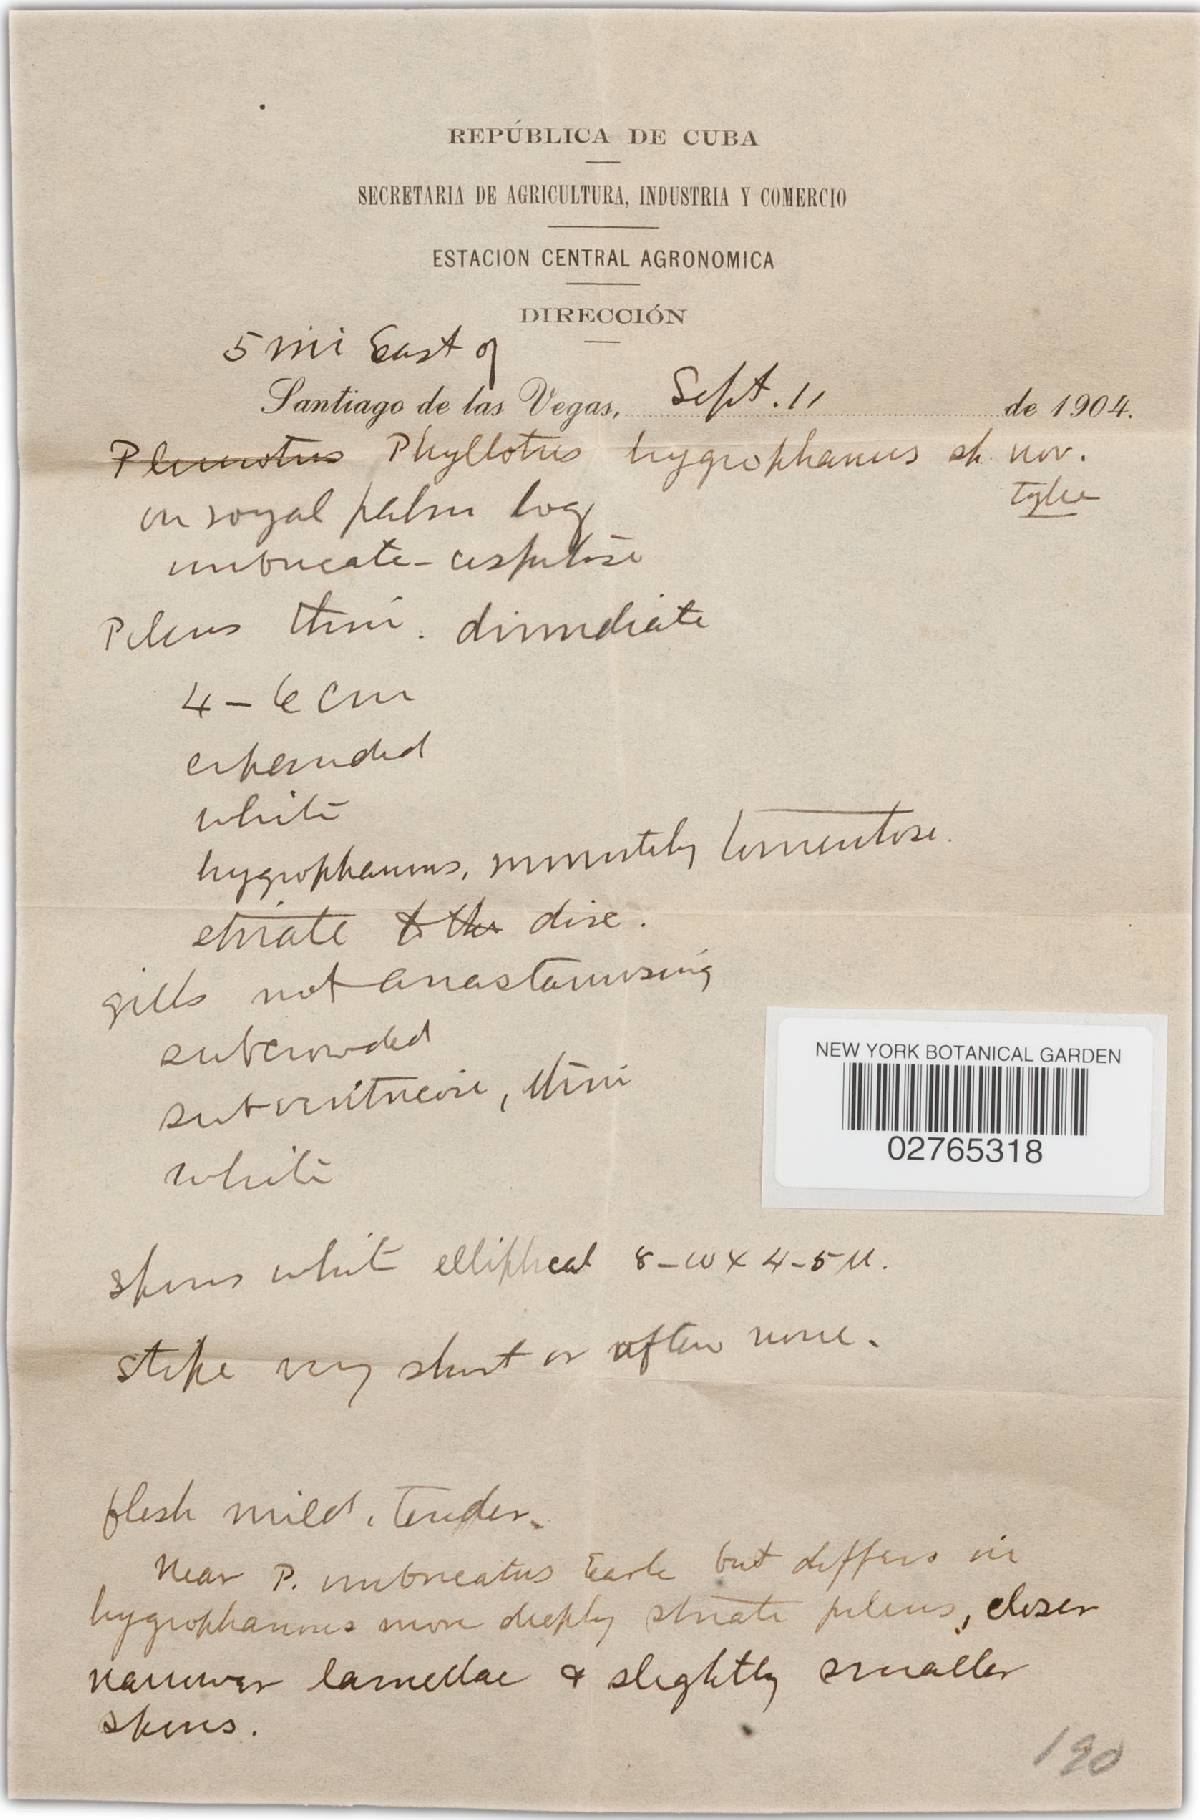 REPÚBLICA DE CUBA
SECRETARIA DE AGRICULTURA, INDUSTRIA Y COMERCIO
ESTACION CENTRAL AGRONOMICA
DIRECCIÓN
5 mi East of
Santiago de las Vegas, Sept. 11 de 1904.
Pleurotus Phyllotus hygrophanus sp nov.
type
on royal palm log
imbricate-cespitose
Pileus thin. dimidiate
4-6 cm
expanded
white
hygrophanous, minutely tomentose.
striate to the disc.
gills not anastamosing
subcrowded
subventricose, thin
white
spores white elliptical 8-10 x 4-5 µ.
stipe very short or often none.
flesh mild, tender.
Near P. imbricatus Earle but differs in
hygrophanous more deeply striate pileus, closer
narrower lamellae & slightly smaller
spores.
190
NEW YORK BOTANICAL GARDEN
02765318